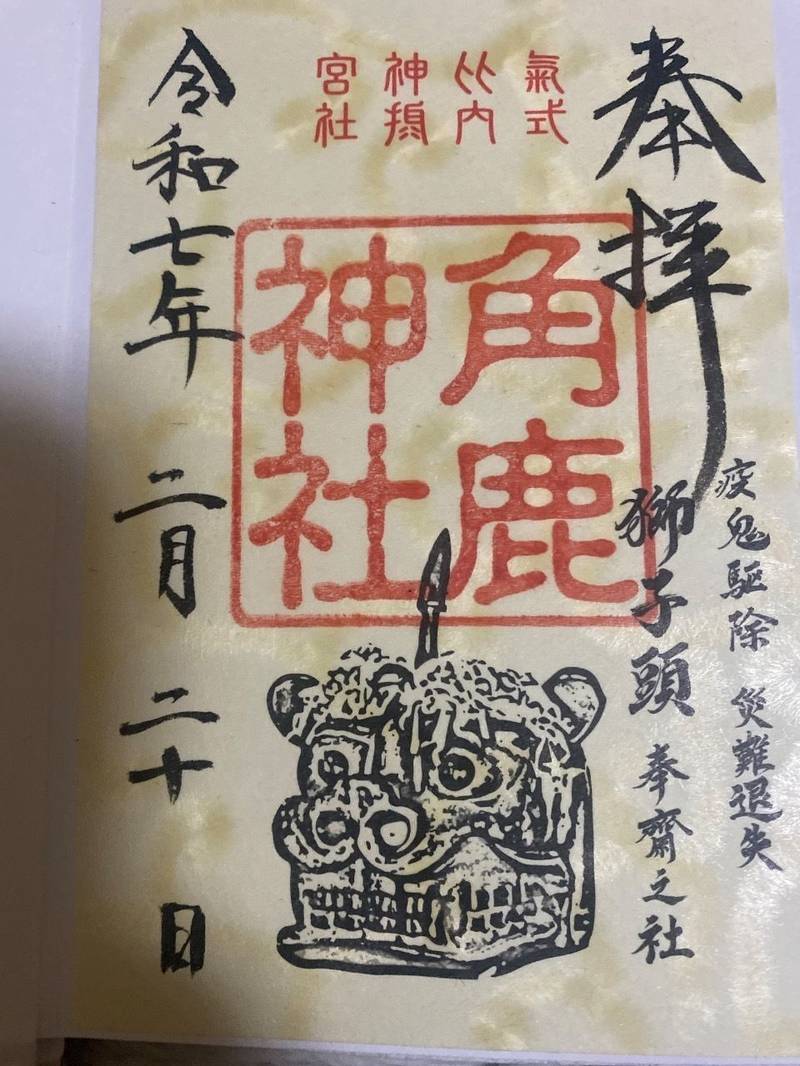 氣比神宮
式内摂社
奉拝
角鹿
神社
疫鬼驅除 災難退失
獅子頭 奉齋之社
令和七年 二月 二十 日